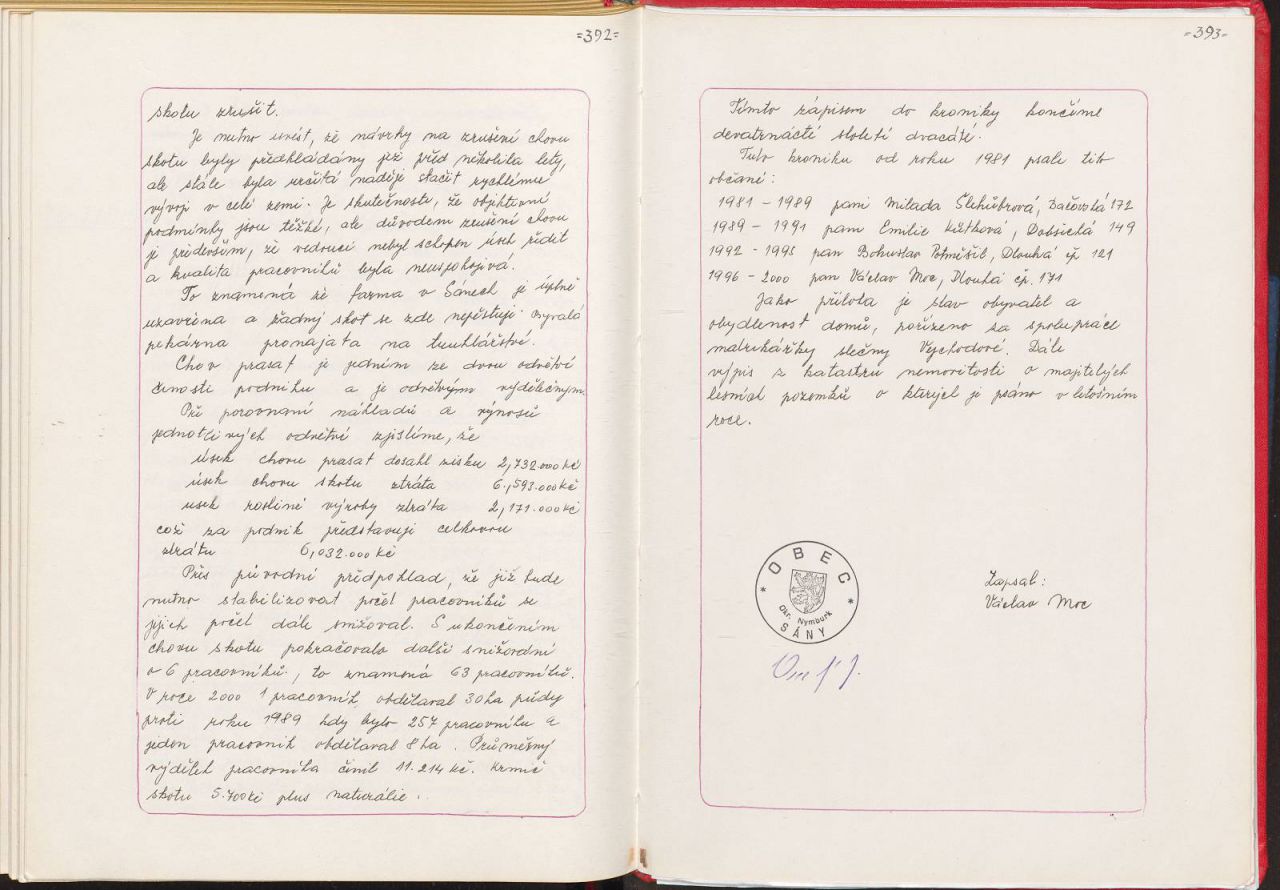 =392=
skotu zrušit.
Je nutno uvést, že návrhy na zrušení chovu
skotu byly předkládány již před několika lety,
ale stále byla určitá naděje stačit rychlému
vývoji v celé zemi. Je skutečností, že objektivní
podmínky jsou těžké, ale důvodem zrušení chovu
je především, že vedoucí nebyl schopen úsek řídit
a kvalita pracovníků byla neuspokojivá.
To znamená že farma v Sánech je úplně
uzavřena a žádný skot se zde nepěstuje. Bývalá
pekárna pronajata na truhlářství.
Chov prasat je jedním ze dvou odvětví
činnosti podniku a je odvětvím výdělečným.
Při porovnaní nákladů a výnosů
jednotlivých odvětví zjistíme, že
úsek chovu prasat dosáhl zisku 2,732.000 kč
úsek chovu skotu ztráta 6.,593.000 kč
usek rostliné výroby ztráta 2,171.000 kč
což za podnik představuji celkovou
ztrátu 6,032.000 kč
Přes původní předpoklad, že již bude
nutno stabilizovat počet pracovníků se
jejich počet dále snižoval. S ukončením
chovu skotu pokračovalo další snižování
o 6 pracovníků, to znamená 63 pracovníků.
V roce 2000 1 pracovník obdělaval 30 ha půdy
proti roku 1989 kdy bylo 257 pracovníku a
jeden pracovník obdělaval 8 ha. Průměrný
výdělek pracovníka činil 11.214 kč. krmič
skotu 5.700 kč plus naturálie.
=393=
Tímto zápisem do kroniky končíme
devatenácté století dvacáté.
Tuto kroniku od roku 1981 psale tito
občané:
1981 - 1989 pani Milada 172
1989 - 1991 pani Emilie Dobšická 149
1992 - 1995 pan Bohuslav Potměšil, Dlouhá čp 121
1996 - 2000 pan Václav Moc, Dlouhá čp. 171
Jako příloha je stav obyvatel a
obydlenost domů, pořízeno za spolupráce
matrikářky slečny Východové. Dále
výpis z katastru nemovitostí o majitelých
lesních pozemků o kterých je psáno v letošním
roce.
OBEC
Okr. Nymburk
SÁNY
Zapsal:
Václav Moc